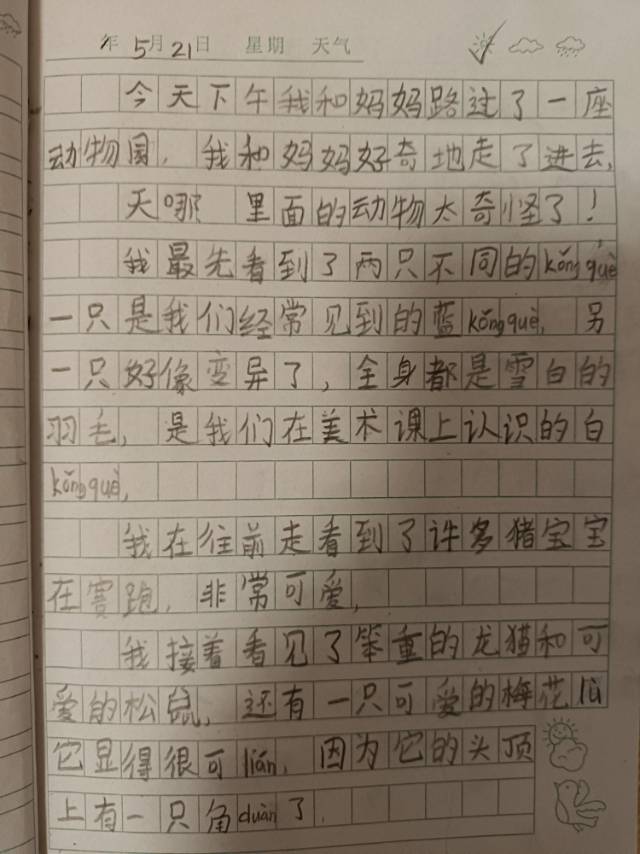 年5月21日 星期 天气
今天下午我和妈妈路过了一座
动物园，我和妈妈好奇地走了进去，
天哪 里面的动物太奇怪了！
我最先看到了两只不同的kǒngquè
一只是我们经常见到的蓝kǒngquè，另
一只好像变异了，全身都是雪白的
羽毛，是我们在美术课上认识的白
kǒngquè，
我在往前走看到了许多猪宝宝
在赛跑，非常可爱，
我接着看见了笨重的龙猫和可
爱的松鼠，还有一只可爱的梅花lù
它显得很可lián，因为它的头顶
上有一只角duàn了．